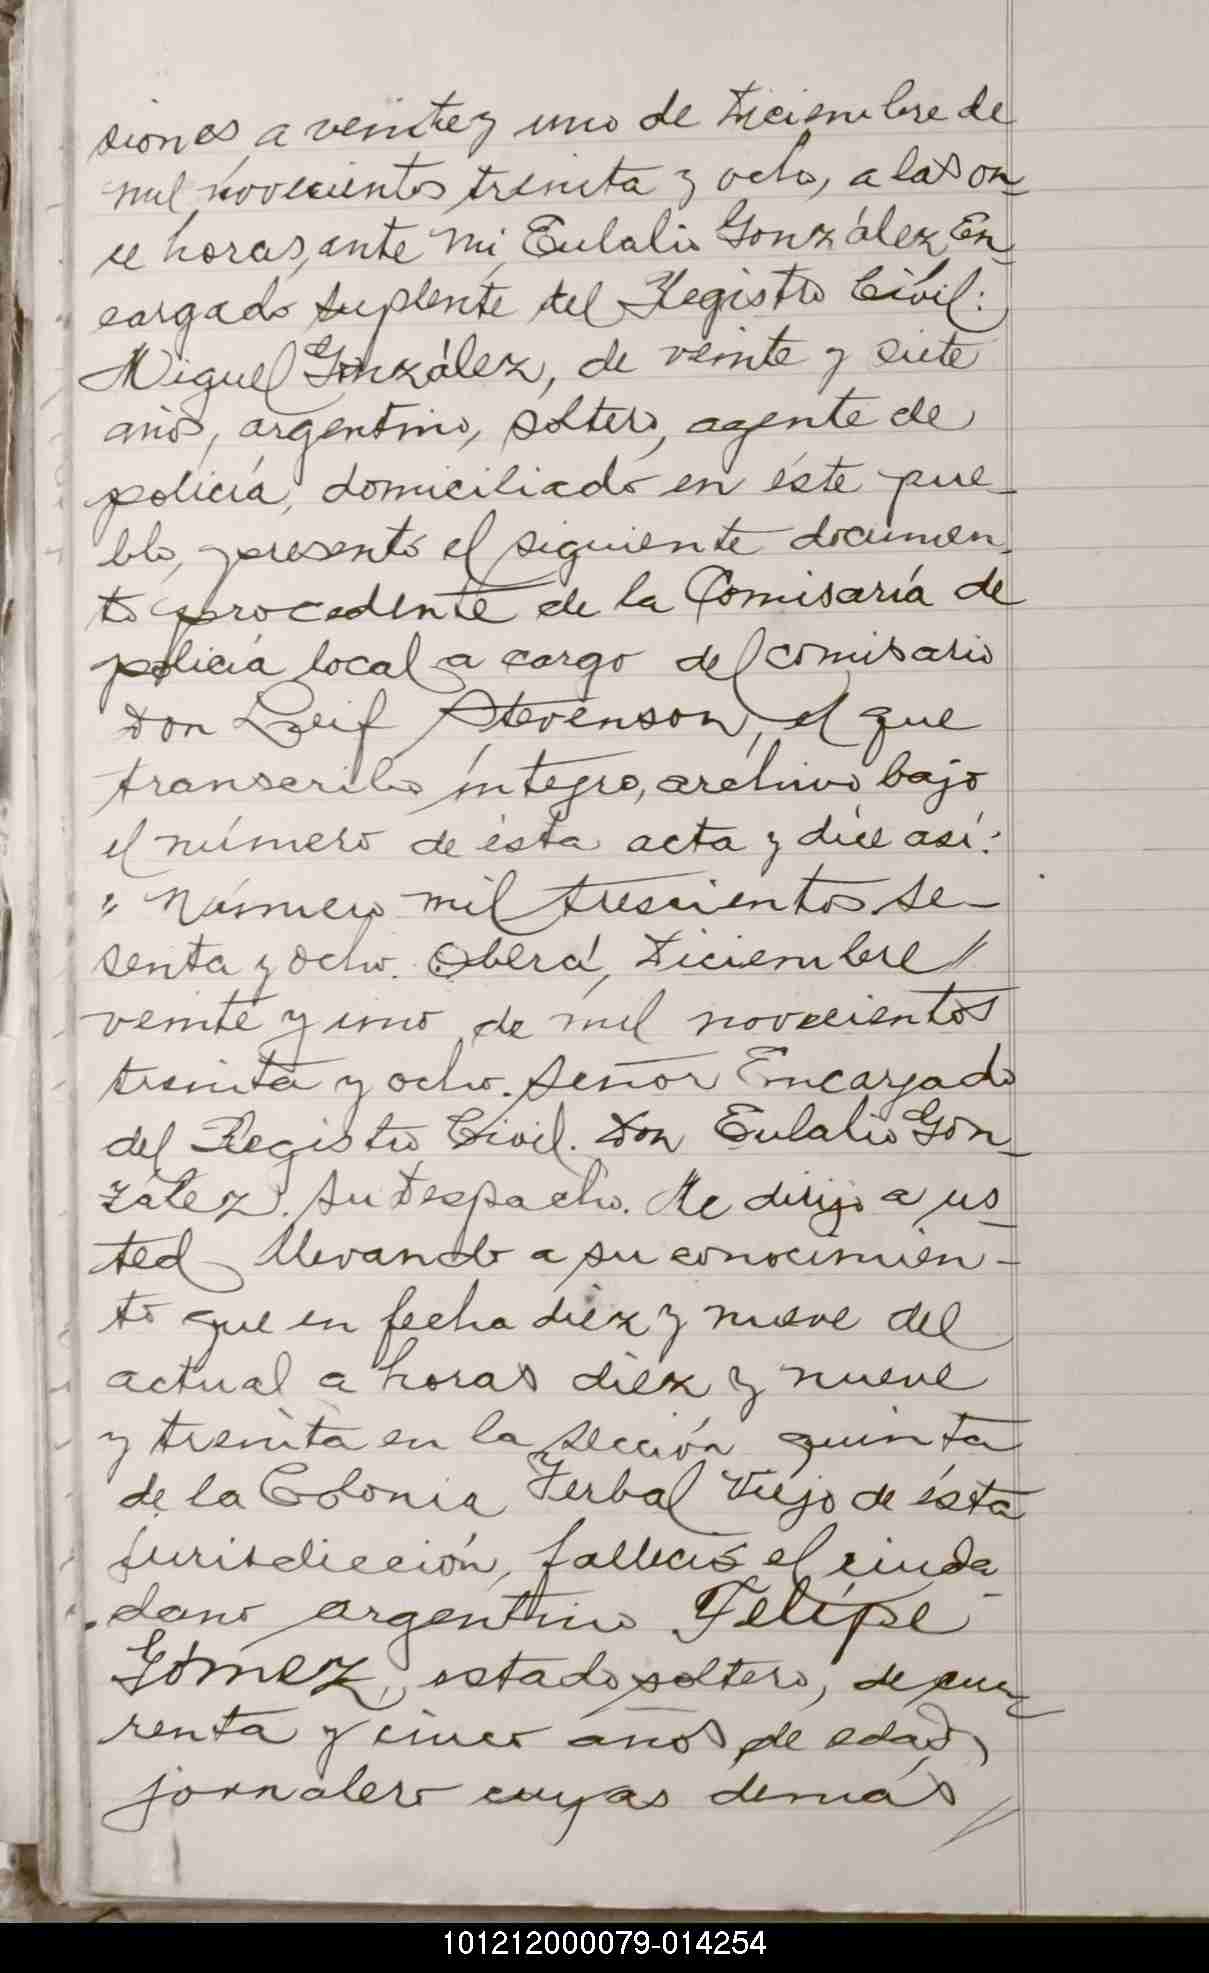 siones a veinte y uno de Diciembre de
mil novecientos treinta y ocho, a las on-
ce horas, ante mi, Eulalio González En-
cargado suplente del Registro Civil:
Miguel González, de veinte y siete
años, argentino, soltero, agente de
policía, domiciliado en éste pue-
blo, presentó el siguiente documen-
to procedente de la Comisaría de
policía local a cargo del comisario
Don Leif Stevenson, el que
transcribo íntegro, archivo bajo
el número de ésta acta y díce así:
"Número mil trescientos se-
senta y ocho. Oberá, Diciembre //
veinte y uno de mil novecientos
treinta y ocho. Señor Encargado
del Registro Civil. Don Eulalio Gon-
zález. Su Despacho. Me dirijo a us-
ted llevando a su conocimien-
to que en fecha diez y nueve del
actual a horas diez y nueve
y treinta en la sección quinta
de la Colonia Yerbal Viejo de ésta
jurisdicción, falleció el ciuda-
dano argentino Felípe
Gómez, estado soltero, de cua-
renta y cinco años de edad,
jornalero cuyas demás
101212000079-014254